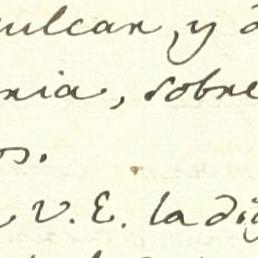 ulcan, y
nia, sobre
os.
V. E. la dig